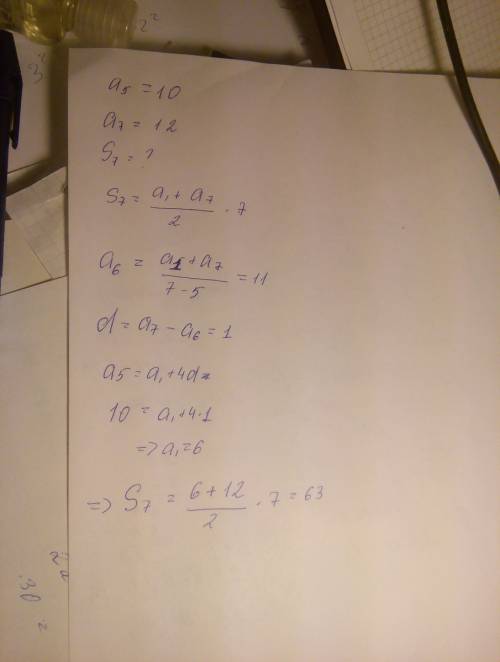 a₅ = 10
a₇ = 12
S₇ = ?
S₇ = (a₁ + a₇)/2 · 7
a₆ = (a₁ + a₇)/(7 - 5) = 11
d = a₇ - a₆ = 1
a5 = a₁ + 4d
10 = a₁ + 4 · 1
=> a₁ = 6
=> S₇ = (6 + 12)/2 · 7 = 63
30